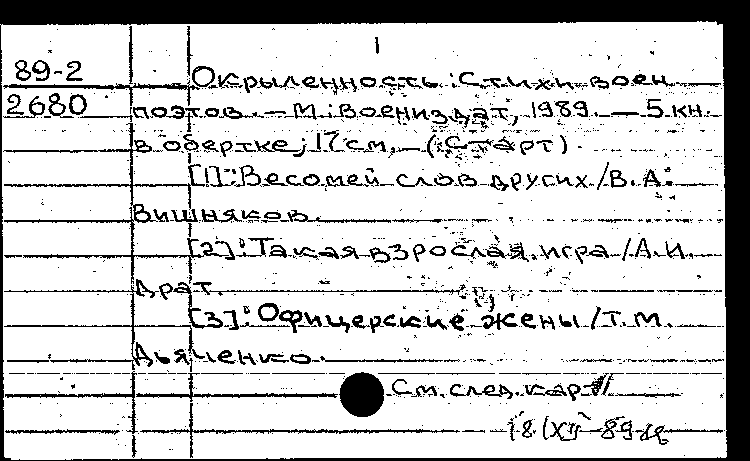 1
89-2 Окрыленность: Стихи воен
2680 поэтов. — М.: Воениздат, 1989. — 5 кн.
в обертке; 17 см. — (Старт).
[1]: Весомей слов других / В. А.
Вишняков.
[2]: Такая взрослая игра / А. И.
Драт.
[3]: Офицерские жены / Т. М.
Дьяченко.
См. след. карт
18/XII-89